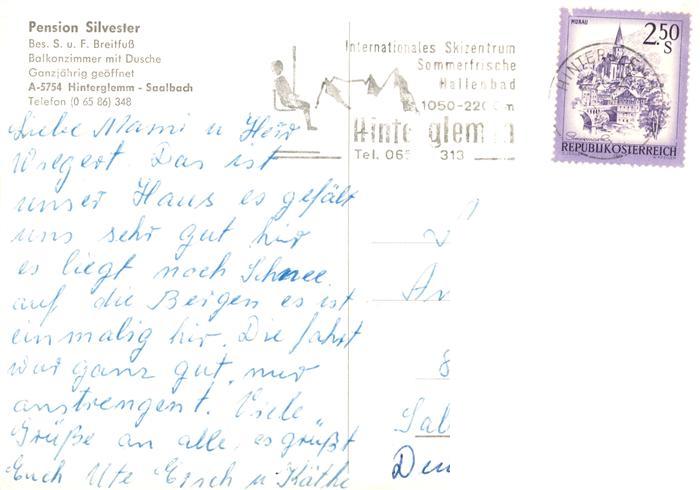 Pension Silvester
Bes. S. u. F. Breitfuß
Balkonzimmer mit Dusche
Ganzjährig geöffnet
A-5754 Hinterglemm - Saalbach
Telefon (0 65 86) 348
Internationales Skizentrum
Sommerfrische
Hallenbad
1050-220 m
Hinterglemm
Tel. 065 313
MURAU
2.50
S
REPUBLIK ÖSTERREICH
Liebe Mami u Herr
Wiegert. Das ist
unser Haus es gefält
uns sehr gut hir
es liegt noch Schnee
auf die Bergen es ist
einmalig hir. Die fahrt
war ganz gut, nur
anstrengent. Viele
Grüße an alle, es grüßt
Euch Ute u Käthe
An
8
Sal